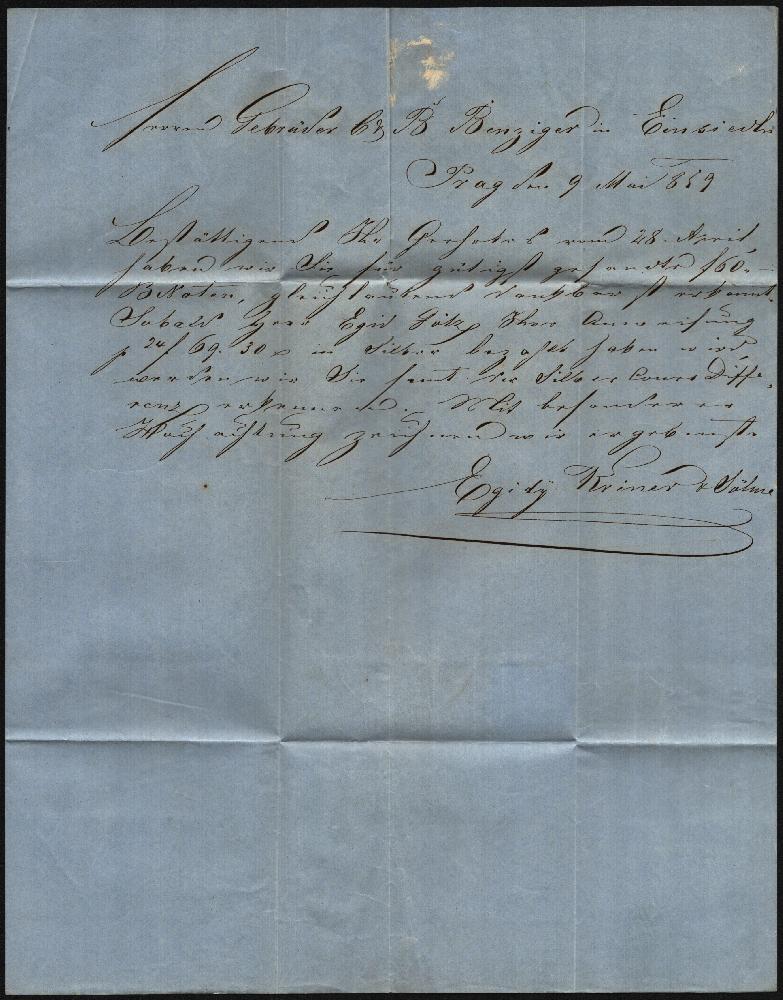 Herren Gebrüder C & N Benziger in Einsiedln
Prag den 9 Mai 859
Bestättigend Ihr Geehrtes vom 28. April,
haben wir Sie für gütigst gesandte f 60.-
BNoten, gleichlautend dankbarst erkannt.
Sobald Herr Egid Götz Ihre Anweisung
p 24/f 69. 30 x in Silber bezahlt haben wird,
werden wir Sie samt der Silber Cours Diffe-
renz erkennen. Mit besonderer
Hochachtung zeichnen wir ergebenste
Egidÿ Kriner & Söhne